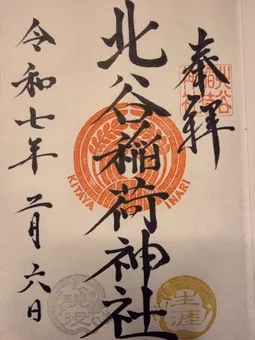 奉拝
北谷稲荷神社
KITAYA INARI
令和七年二月六日